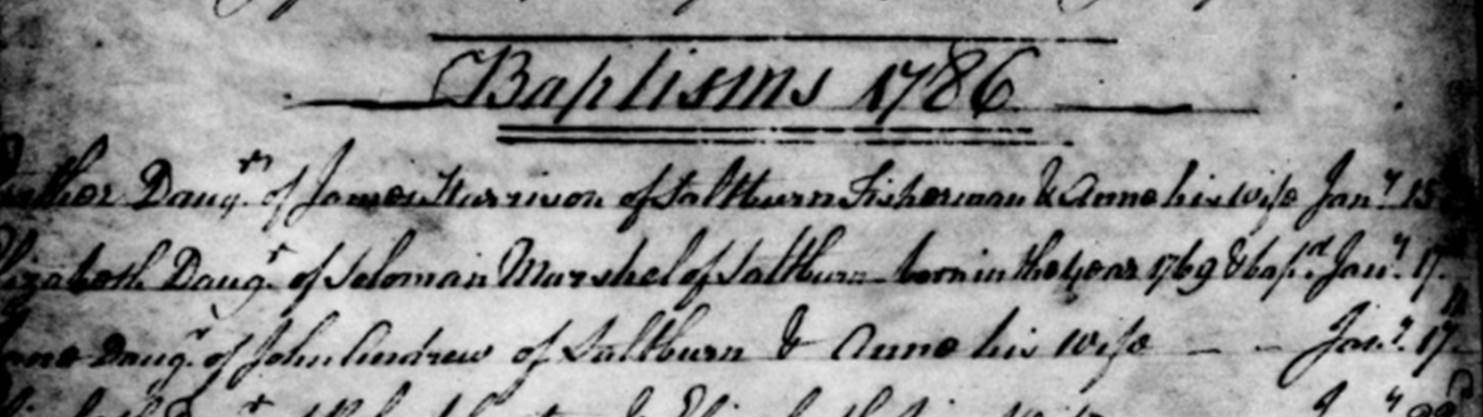 Baptisms 1786
Esther Daugr. of James Harrison of Saltburn Fisherman & Anne his wife Jany. 15
Elizabeth Daugr. of Soloman Marshel of Saltburn born in the year 1769 & bapd. Jany. 17
Daugr. of John Andrew of Saltburn & Anne his wife - - Jany. 17